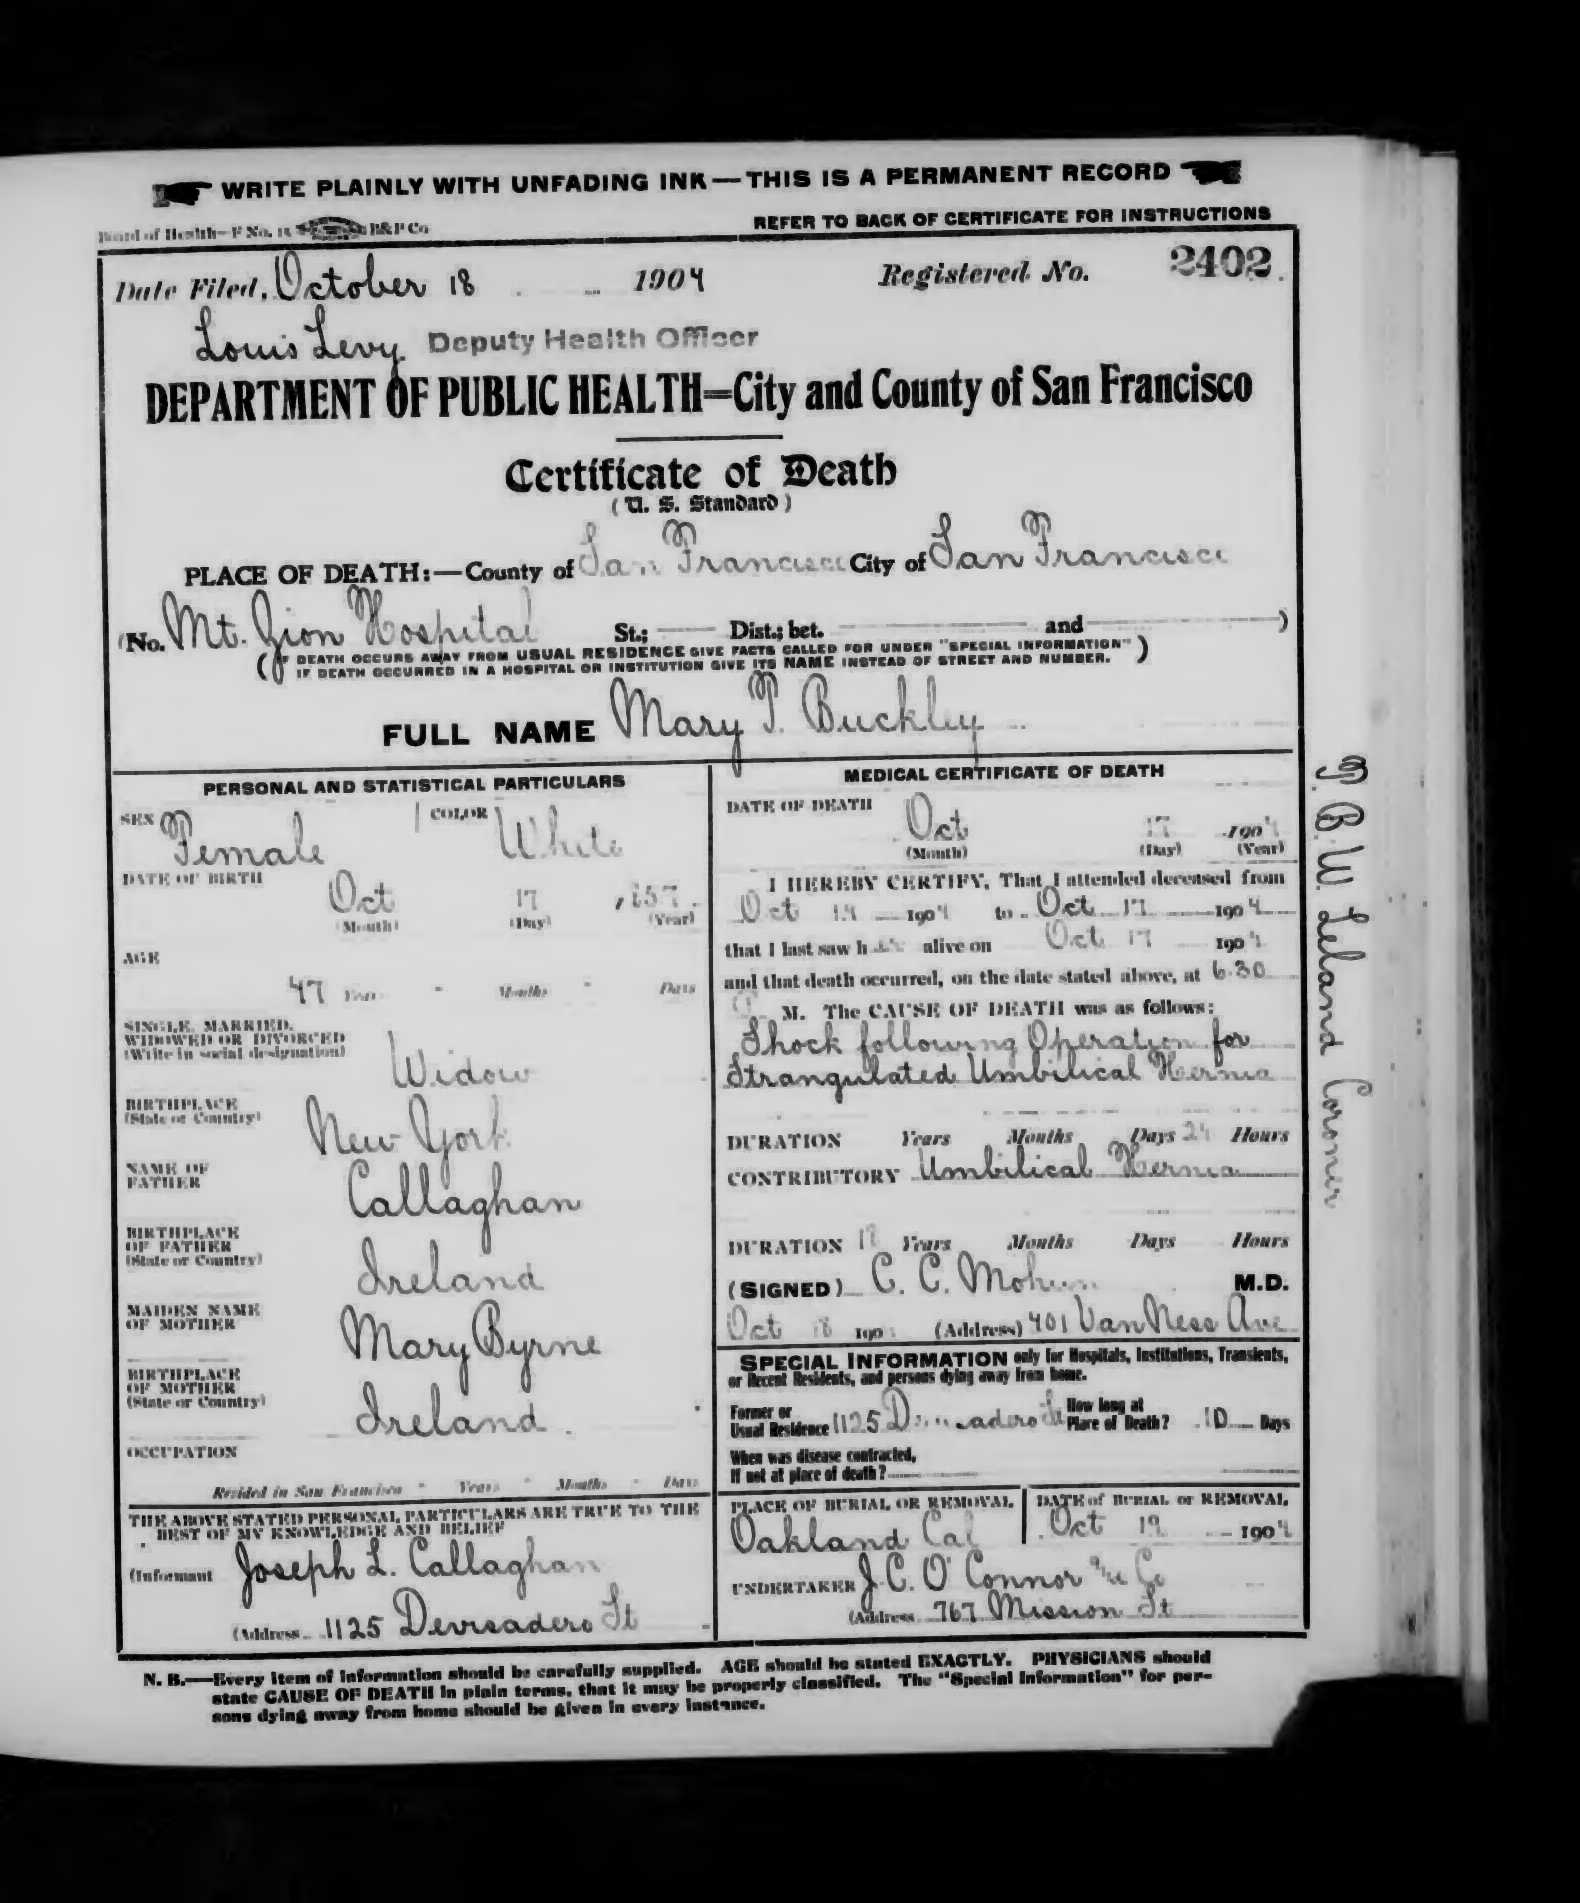 WRITE PLAINLY WITH UNFADING INK — THIS IS A PERMANENT RECORD
Board of Health—F No. B&P Co
REFER TO BACK OF CERTIFICATE FOR INSTRUCTIONS
Date Filed, October 18 1904 Registered No. 2402
Louis Levy Deputy Health Officer
DEPARTMENT OF PUBLIC HEALTH=City and County of San Francisco
Certificate of Death
(U. S. Standard)
PLACE OF DEATH:—County of San Francisco City of San Francisco
(No. Mt. Zion Hospital St.; Dist.; bet. and )
(IF DEATH OCCURS AWAY FROM USUAL RESIDENCE GIVE FACTS CALLED FOR UNDER "SPECIAL INFORMATION"
IF DEATH OCCURRED IN A HOSPITAL OR INSTITUTION GIVE ITS NAME INSTEAD OF STREET AND NUMBER.)
FULL NAME Mary T. Buckley
PERSONAL AND STATISTICAL PARTICULARS
SEX Female COLOR White
DATE OF BIRTH
Oct 17, 857
(Month) (Day) (Year)
AGE
47 Years Months Days
SINGLE, MARRIED,
WIDOWED OR DIVORCED
(Write in social designation)
Widow
BIRTHPLACE
(State or Country)
New York
NAME OF
FATHER
Callaghan
BIRTHPLACE
OF FATHER
(State or Country)
Ireland
MAIDEN NAME
OF MOTHER
Mary Byrne
BIRTHPLACE
OF MOTHER
(State or Country)
Ireland
OCCUPATION
Resided in San Francisco Years Months Days
THE ABOVE STATED PERSONAL PARTICULARS ARE TRUE TO THE
BEST OF MY KNOWLEDGE AND BELIEF
(Informant Joseph L. Callaghan
(Address 1125 Devisadero St
MEDICAL CERTIFICATE OF DEATH
DATE OF DEATH
Oct 17 1904
(Month) (Day) (Year)
I HEREBY CERTIFY, That I attended deceased from
Oct 1904 to Oct 17 1904
that I last saw h alive on Oct 17 1904
and that death occurred, on the date stated above, at 6.30
M. The CAUSE OF DEATH was as follows:
Shock following Operation for
Strangulated Umbilical Hernia
DURATION Years Months Days 24 Hours
CONTRIBUTORY Umbilical Hernia
DURATION Years Months Days Hours
(SIGNED) C. C. Mohun M.D.
Oct 18 190 (Address) 401 Van Ness Ave
SPECIAL INFORMATION only for Hospitals, Institutions, Transients,
or Recent Residents, and persons dying away from home.
Former or
Usual Residence 1125 Devisadero St How long at
Place of Death? 10 Days
When was disease contracted,
If not at place of death?
PLACE OF BURIAL OR REMOVAL
Oakland Cal
DATE of BURIAL or REMOVAL
Oct 19 1904
UNDERTAKER J. C. O'Connor & Co
(Address 767 Mission St
N. B.—Every item of information should be carefully supplied. AGE should be stated EXACTLY. PHYSICIANS should
state CAUSE OF DEATH in plain terms, that it may be properly classified. The "Special Information" for per-
sons dying away from home should be given in every instance.
T. B. W. Leland Coroner